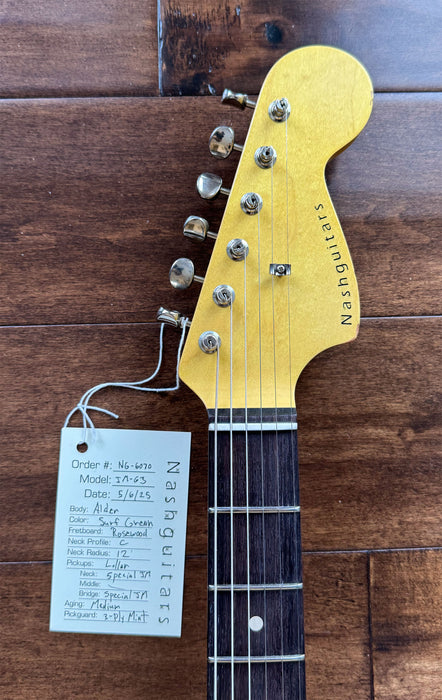 Nashguitars
Nashguitars
Order #: NG-6070
Model: JM-63
Date: 5/6/25
Body: Alder
Color: Surf Green
Fretboard: Rosewood
Neck Profile: C
Neck Radius: 12"
Pickups: Lollar
Neck: Special JM
Middle:
Bridge: Special JM
Aging: Medium
Pickguard: 3-Ply Mint